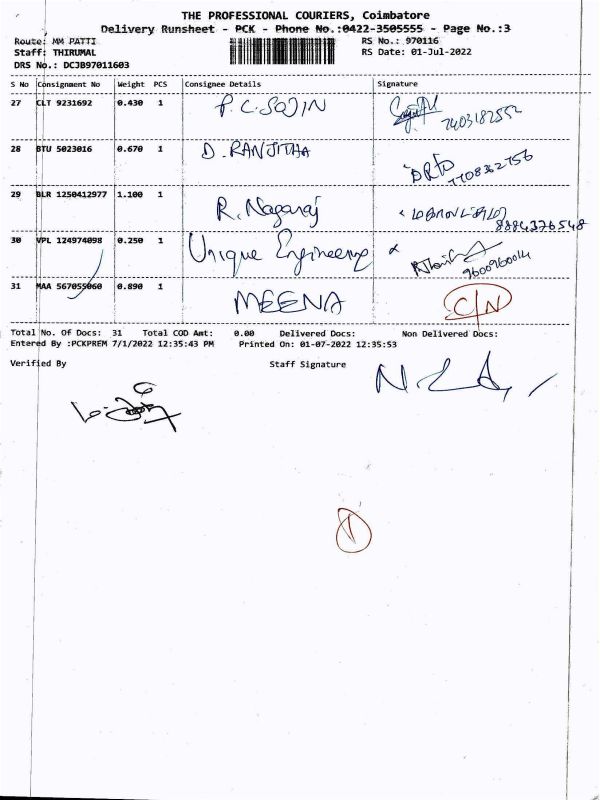 THE PROFESSIONAL COURIERS, Coimbatore
Delivery Runsheet - PCK - Phone No.:0422-3505555 - Page No.:3
Route: MM PATTI RS No.: 970116
Staff: THIRUMAL RS Date: 01-Jul-2022
DRS No.: DCJB97011603
S No Consignment No Weight PCS Consignee Details Signature
27 CLT 9231692 0.430 1 P.C.SOJIN 7403182552
28 BTU 5023016 0.670 1 D. RANJITHA 7708362756
29 BLR 1250412977 1.100 1 R. Nagaraj 8884376548
30 VPL 124974098 0.250 1 Unique Engineering 9600960014
31 MAA 567055060 0.890 1 MEENA C/N
Total No. Of Docs: 31 Total COD Amt: 0.00 Delivered Docs: Non Delivered Docs:
Entered By :PCKPREM 7/1/2022 12:35:43 PM Printed On: 01-07-2022 12:35:53
Verified By Staff Signature